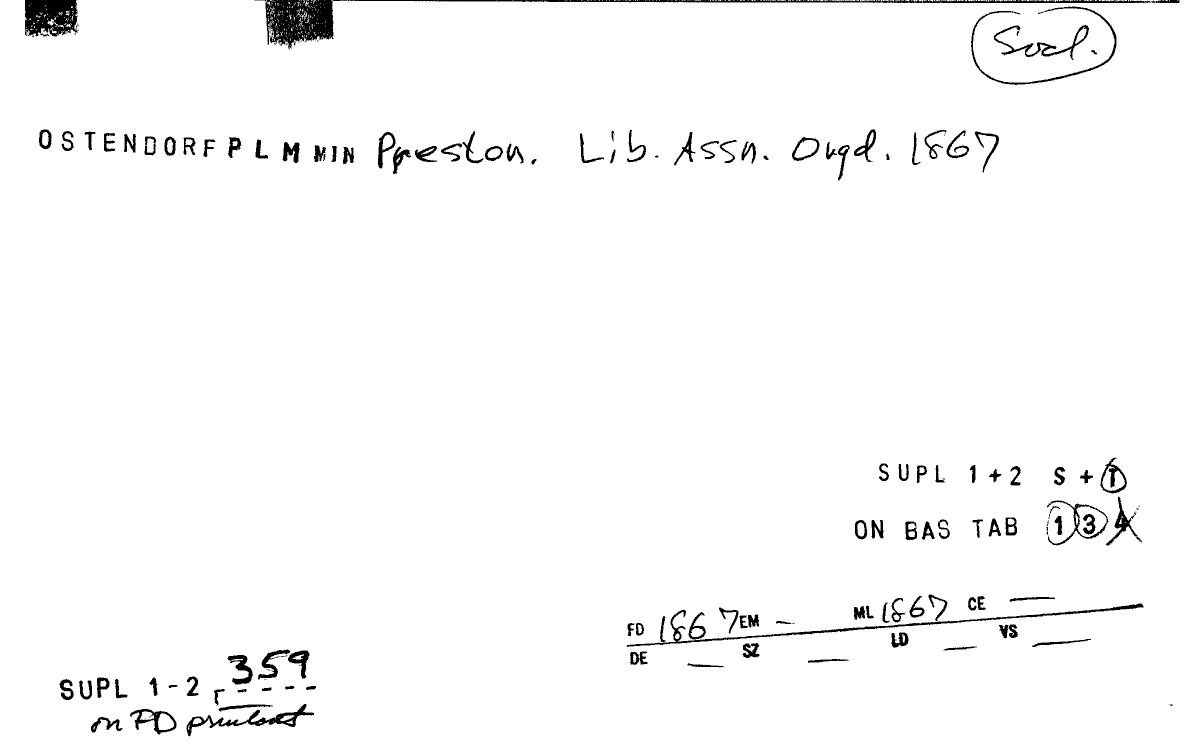 Socl.
OSTENDORF P L M MIN Preston. Lib. Assn. Orgd. 1867
SUPL 1+2 S + T
ON BAS TAB 1 3 4
FD 1867 EM – ML 1867 CE —
DE — SZ — LD — VS —
SUPL 1-2 359
on FD printout